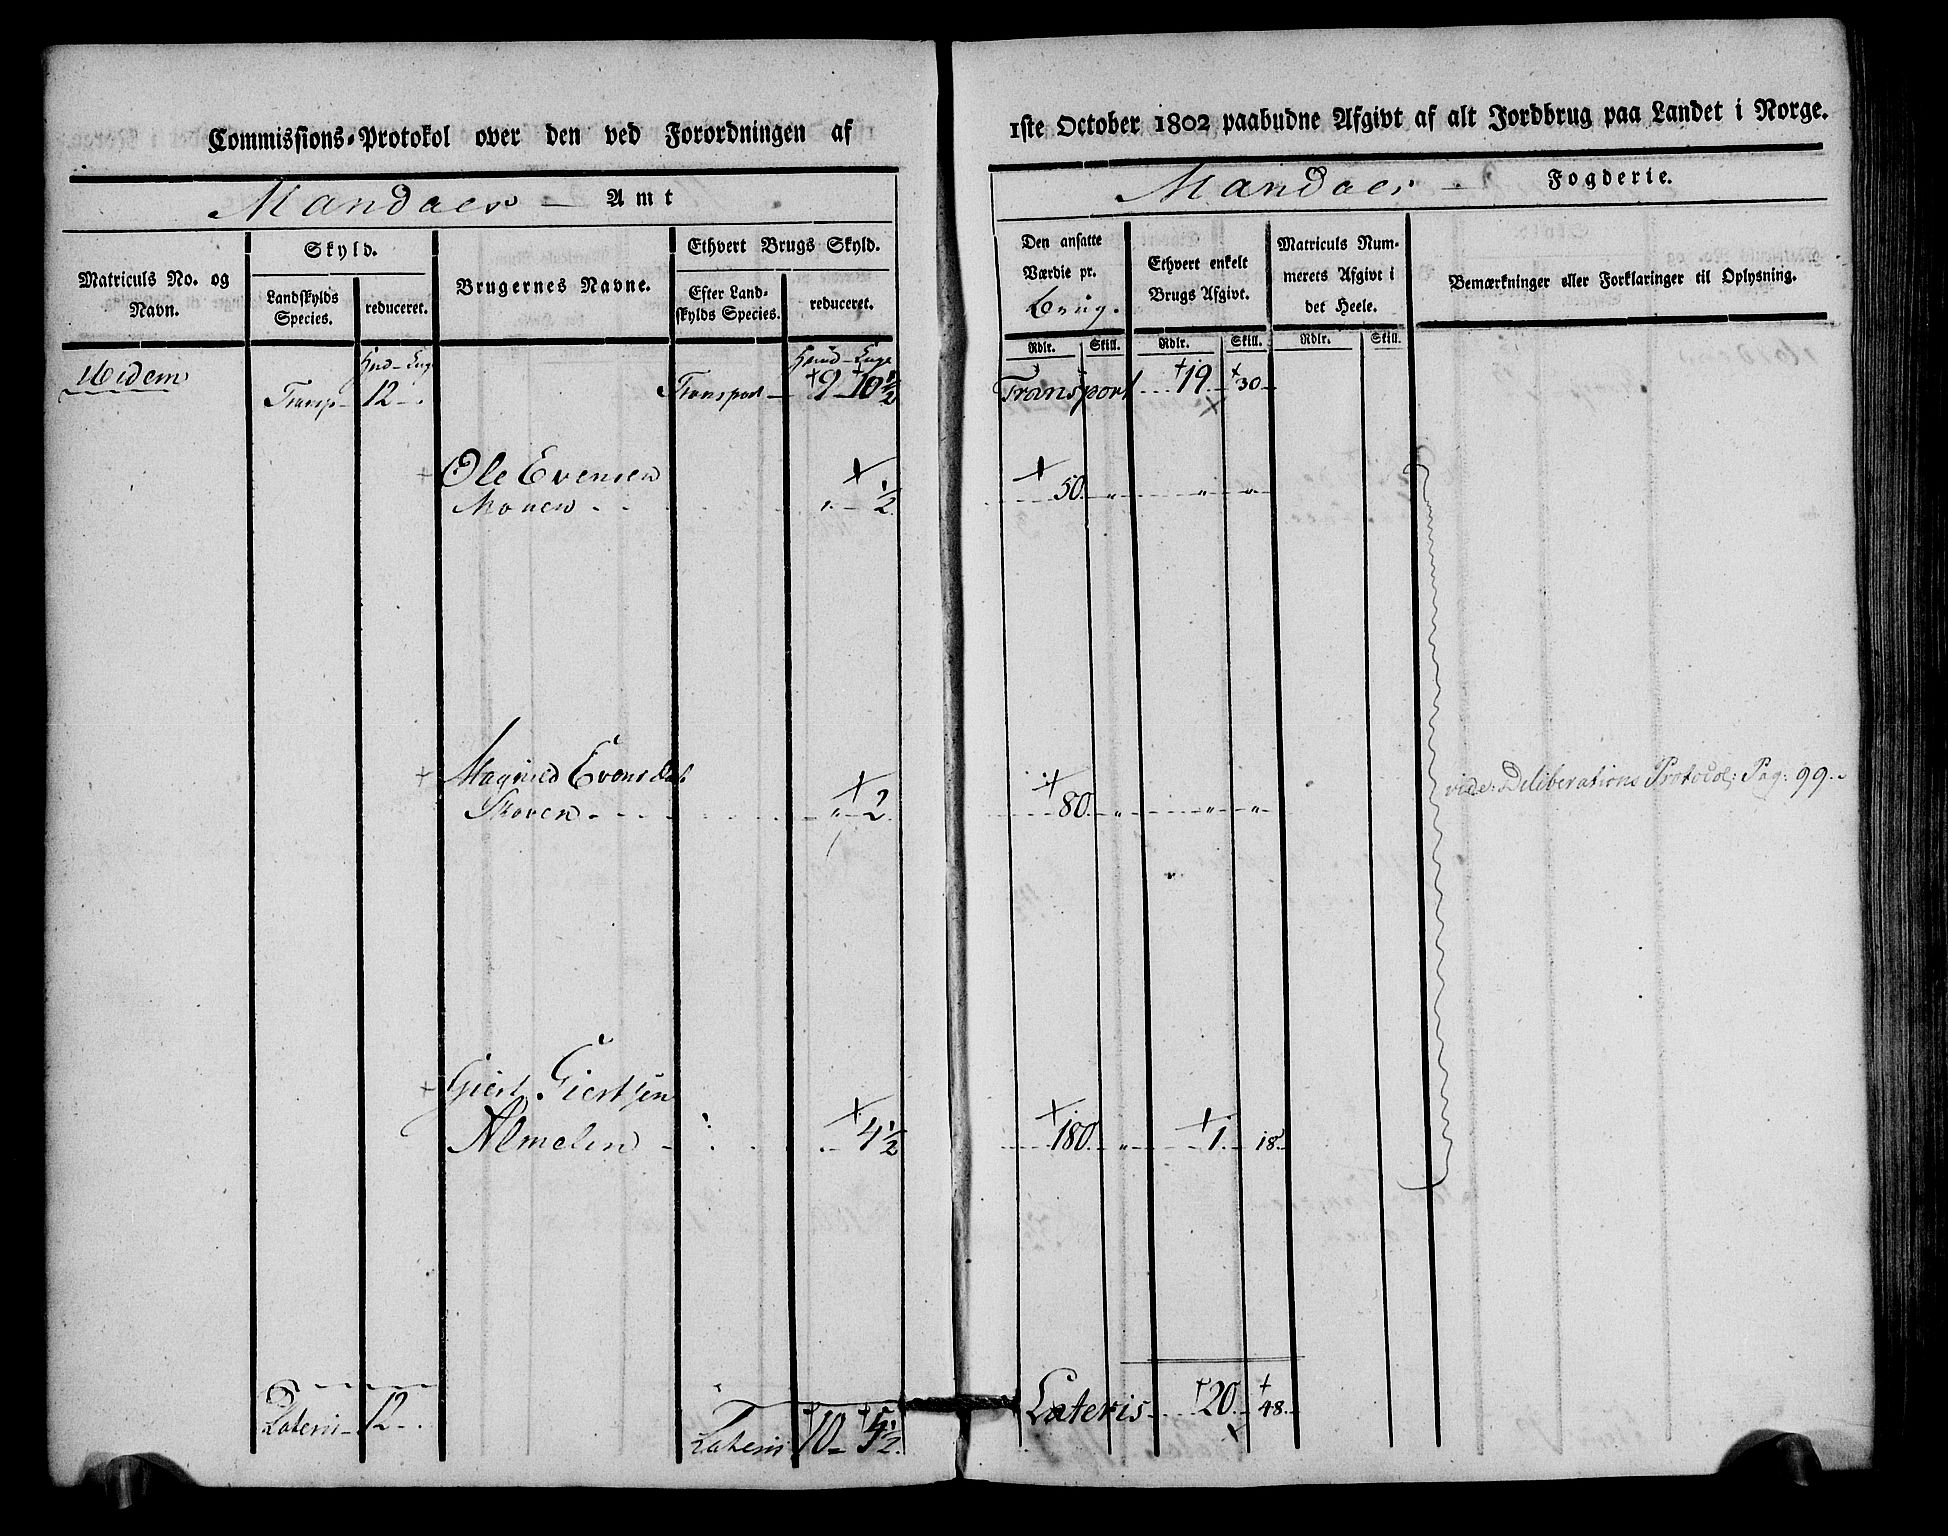 Commissions-Protokol over den ved Forordningen af
1ste October 1802 paabudne Afgivt af alt Jordbrug paa Landet i Norge.
Mandaer – Amt
Mandaer – Fogderie.
Matriculs No. og Navn.
Skyld.
Landskylds Species.
reduceret.
Brugernes Navne.
Ethvert Brugs Skyld.
Efter Landskylds Species.
reduceret.
Den ansatte Værdie pr. Brug.
Ethvert enkelt Brugs Afgivt.
Matriculs Nummerets Afgivt i det Heele.
Bemærkninger eller Forklaringer til Oplysning.
Rdlr. Skill. Rdlr. Skill. Rdlr. Skill.
Hud – Eng
Hud – Enge
Transp – 12 – . Transport – 9 – 10 1/2 Transport – 19 – 30 –
Ole Evensen
Moven – " – 1/2 50 – " – " – "
Magnild Evensdat
Skoven – " – 2 80 – " – " – "
vide: Deliberations Protocol; Pag: 99.
Giert Giertsen
Almelin – " – 4 1/2 180 – " – 1 – 18 –
Lateris – 12 – . Lateris 10 – 5 1/2 Lateris – 20 – 48 –